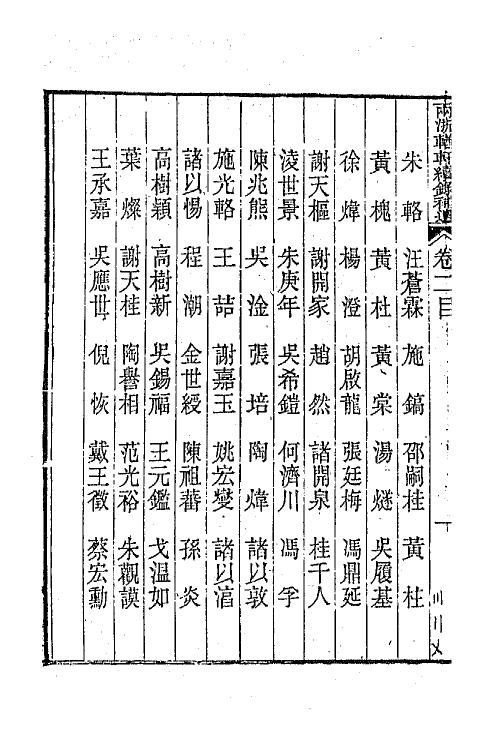 兩浙輶軒續錄補遺 卷二目
朱輅 汪蒼霖 施鎬 邵嗣桂 黃柱
黃槐 黃杜 黃棠 湯燧 吳履基
徐煒 楊澄 胡啟龍 張廷梅 馮鼎延
謝天樞 謝開家 趙然 諸開泉 桂千人
淩世景 朱庚年 吳希鎧 何濟川 馮孚
陳兆熊 吳淦 張培 陶煒 諸以敦
施光輅 王喆 謝嘉玉 姚宏燮 諸以淯
諸以惕 程潮 金世綬 陳祖蕃 孫炎
高樹穎 高樹新 吳錫福 王元鑑 戈温如
葉燦 謝天桂 陶譽相 范光裕 朱觀謨
王承嘉 吳應世 倪恢 戴王徵 蔡宏勳